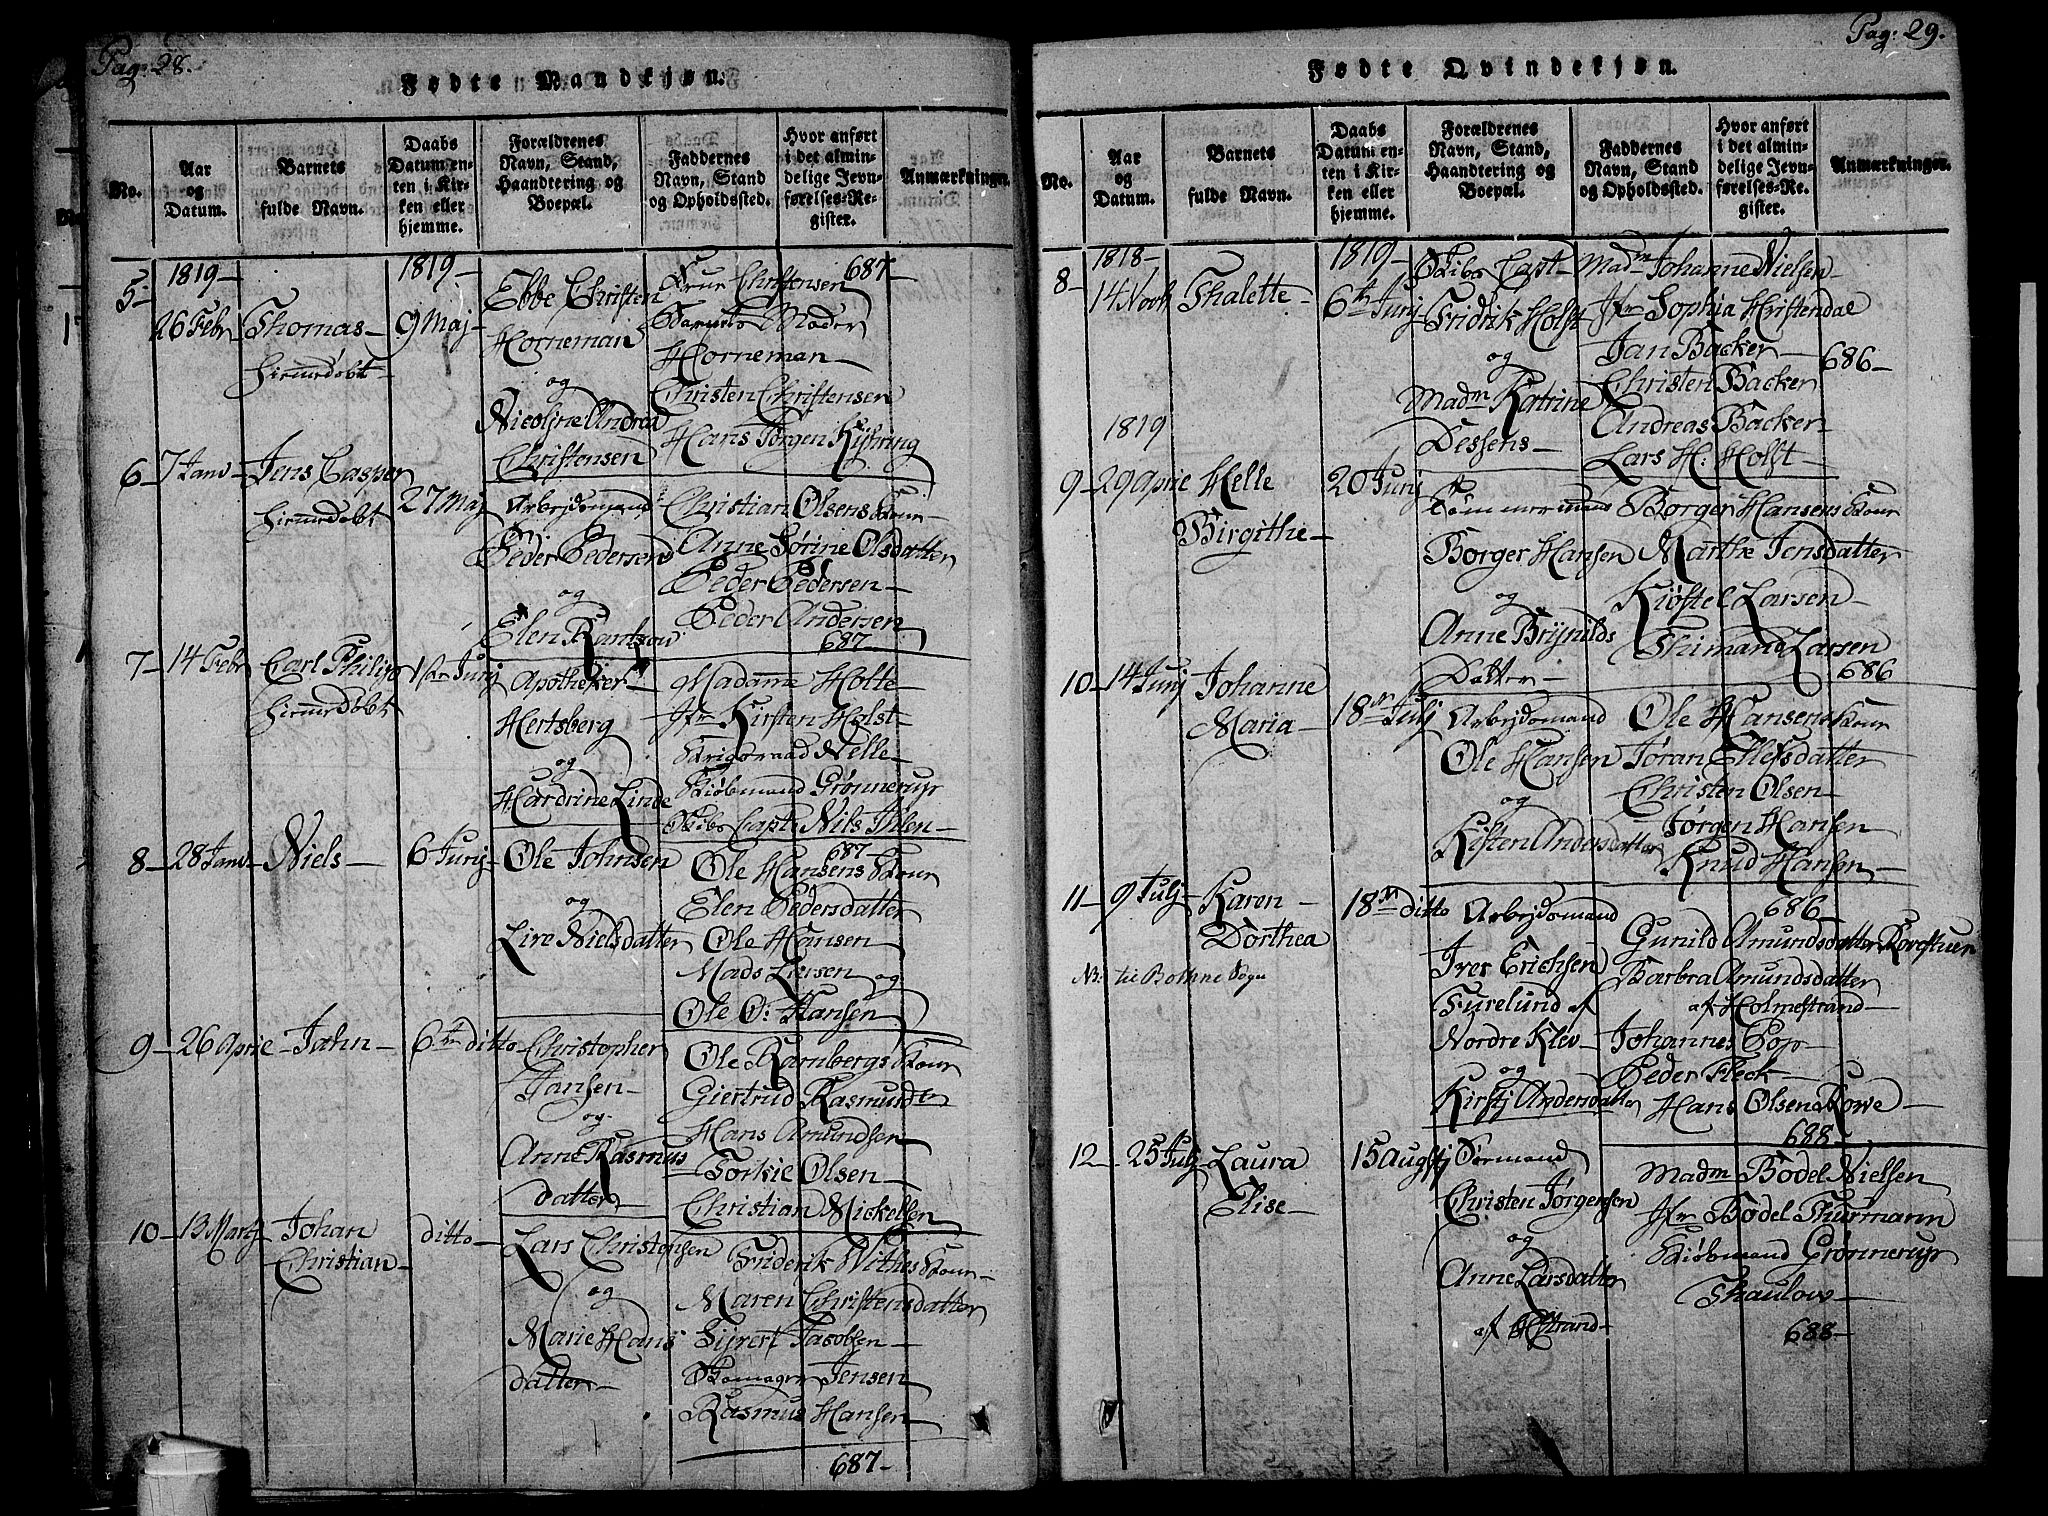 Pag: 28.
Fødte Mandkjøn.
No.
Aar
og
Datum.
Barnets
fulde Navn.
Daabs
Datum en-
ten i Kir-
ken eller
hjemme.
Forældrenes
Navn, Stand,
Haandtering og
Boepæl.
Faddernes
Navn, Stand
og Opholdssted.
Hvor anført
i det almin-
delige Jevn-
førelses-Re-
gister.
Anmærkninger.
5-
1819-
26 Febr
Thomas-
hiemedøbt-
1819-
9 Maj-
Ebbe Christen
Horneman
og
Nicoline Andrea
Christensen
Frue Christensen
Barnets Moder
Horneman-
Christen Christensen
Hans Jørgen Kyhring
687-
6-
7 Janv-
Jens Casper
hiemedøbt
27 Maj
Arbejdsmand
Peder Pedersen
og
Elen Rantzow
Christian Olsens Kone-
Anne Sørine Olsdatter
Peder Pedersen-
Peder Andersen
687-
7-
14 Febr
Carl Philip
hiemedøbt
1ste Junj
Apotheker-
Hertsberg
og
Hardrine Linde
Madame Holte-
Jfr Kirsten Holst-
Krigsraad Nelle-
Kiøbmand Grønnerup
Skibs Capt: Nils Ihlen-
687-
8-
28 Janv-
Niels-
6 Junj-
Ole Johnsen
og
Live Nielsdatter
Ole Hansens Kone
Elen Pedersdatter
Ole Hansen
Mads Larsen og
Ole O: Hansen
9-
26 Aprie-
Jahn-
6te ditto-
Christopher
Hansen-
og
Anne Rasmus
datter-
Ole Rambergs Kone
Giertrud Rasmusdt
Hans Amundsen
Torkie Olsen
Christian Mickelsen
10-
13 Martj
Johan
Christian-
ditto-
Lars Christensen
og
Marie Hans
datter-
Friderik Withes Kone-
Maren Christensdatter
Sijvert Jacobsen-
Skomager Jensen
Rasmus Hansen
687-
Pag: 29.
Fødte Qvindekjøn.
No.
Aar
og
Datum.
Barnets
fulde Navn.
Daabs
Datum en-
ten i Kir-
ken eller
hjemme.
Forældrenes
Navn, Stand,
Haandtering og
Boepæl.
Faddernes
Navn, Stand
og Opholdssted.
Hvor anført
i det almin-
delige Jevn-
førelses-Re-
gister.
Anmærkninger.
8-
1818-
14 Novb
Thalette-
1819-
6te Junj
Skibs Capt-
Fridrik Holst
og
Madm Katrine
Dessens-
Madm Johanne Nielsen-
Jfr Sophia Hristendal
Jan Backer-
Christen Backer
Andreas Backer-
Lars H: Holst-
686-
1819
9-
29 Aprie
Helle
Birgithe-
20 Junj
Tømmermand
Borger Hansen
og
Anne Brynilds
Datter-
Borger Hansens Kone
Marthe Jensdatter
Kiøstel Larsen-
Thimand Larsen
686
10-
14 Junj
Johanne
Maria-
18de Julj
Arbejdsmand
Ole Hansen
og
Kisten Andersdatter
Ole Hansens Kone
Jøran Ellefsdatter
Christen Olsen-
Jørgen Hansen
Knud Hansen-
686-
11-
9 Julj-
Karen-
Dorthea
NB: til Bothne Sogn
18de ditto
Arbejdsmand
Iver Erichsen
Furelund af
Nordre Klev-
og
Kirstj Andersdatter
Gunild Amundsdatter
Barbra Amundsdatter
af Holmestrand-
Johannes Pop-
Peder Fleck-
Hans Olsen Rowe-
688-
12-
25 Julj-
Laura
Elise-
15 Augstj
Formand
Christen Jørgensen
og
Anne Larsdatter
af HStrand-
Madm Bodel Nielsen
Jfr Bodel Thurmann
Kiøbmand Grønnerup
Thaulow-
688-